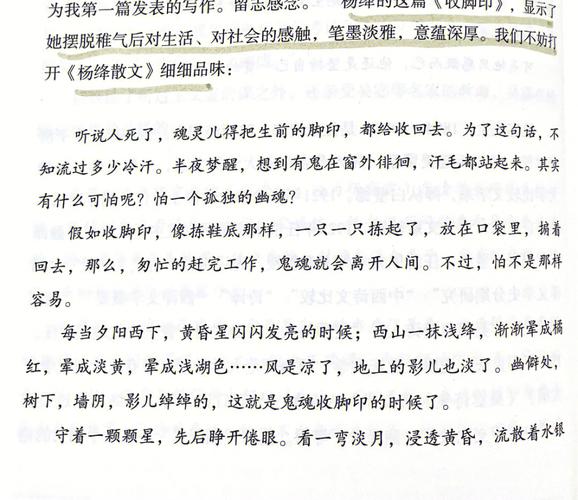 为我第一篇发表的写作。留志感念。 杨绛的这篇《收脚印》，显示了
她摆脱稚气后对生活、对社会的感触，笔墨淡雅，意蕴深厚。我们不妨打
开《杨绛散文》细细品味：
听说人死了，魂灵儿得把生前的脚印，都给收回去。为了这句话，不
知流过多少冷汗。半夜梦醒，想到有鬼在窗外徘徊，汗毛都站起来。其实
有什么可怕呢？怕一个孤独的幽魂？
假如收脚印，像拣鞋底那样，一只一只拣起了，放在口袋里，掮着
回去，那么，匆忙的赶完工作，鬼魂就会离开人间。不过，怕不是那样
容易。
每当夕阳西下，黄昏星闪闪发亮的时候；西山一抹浅绛，渐渐晕成橘
红，晕成淡黄，晕成浅湖色……风是凉了，地上的影儿也淡了。幽僻处，
树下，墙阴，影儿绰绰的，这就是鬼魂收脚印的时候了。
守着一颗颗星，先后睁开倦眼。看一弯淡月，浸透黄昏，流散着水银